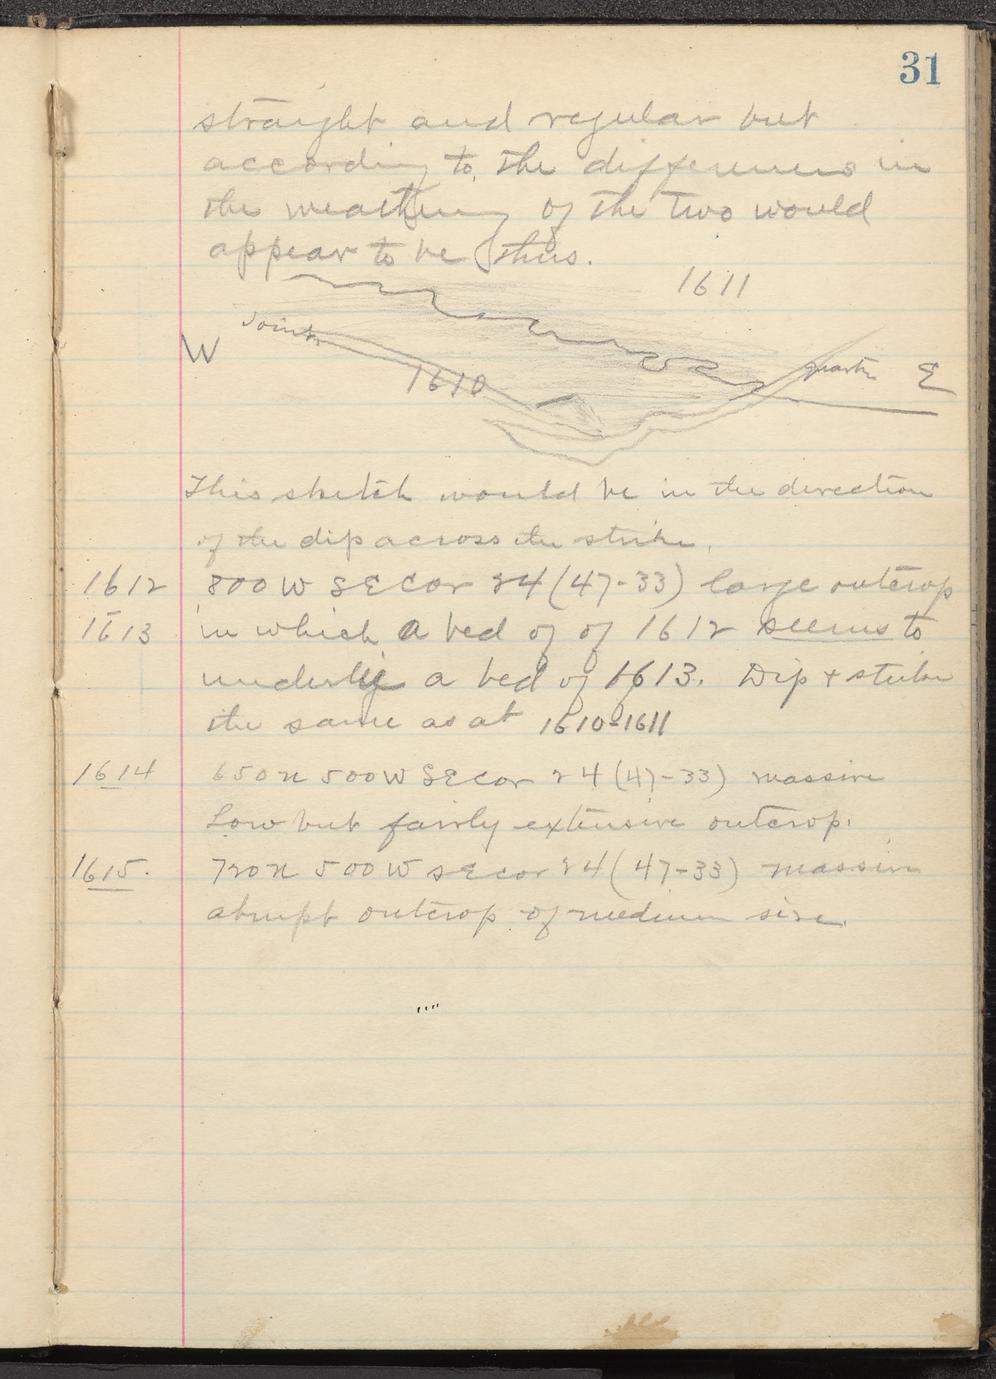 31
straight and regular but
according to the differences in
the weathering of the two would
appear to be thus.
1611
Joint
W
1610
quartz
E
This sketch would be in the direction
of the dip across the strike.
1612 800 W SE cor 24 (47-33) large outcrop
1613 in which a bed of of 1612 seems to
underlie a bed of 1613. Dip + strike
the same as at 1610-1611
1614 650 N 500 W SE cor 24 (47-33) massive
Low but fairly extensive outcrop.
1615. 720 N 500 W SE cor 24 (47-33) massive
abrupt outcrop of medium size.